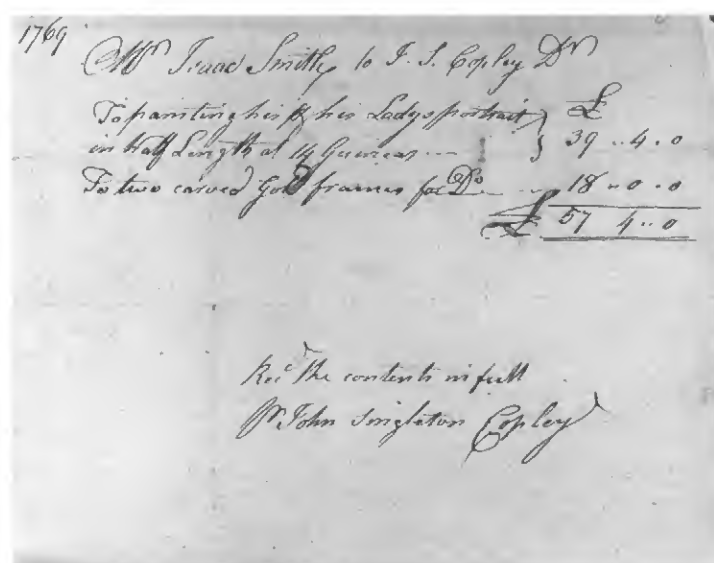 1769
Mr Isaac Smith to J. S. Copley Dr
To painting his & his Ladys portrait } £
in half Length at 14 Guineas } 39 .. 4 . 0
To two carved Gold frames for Do 18 .. 0 .. 0
£ 57 4 .. 0
Recd the contents in full
Pr John Singleton Copley